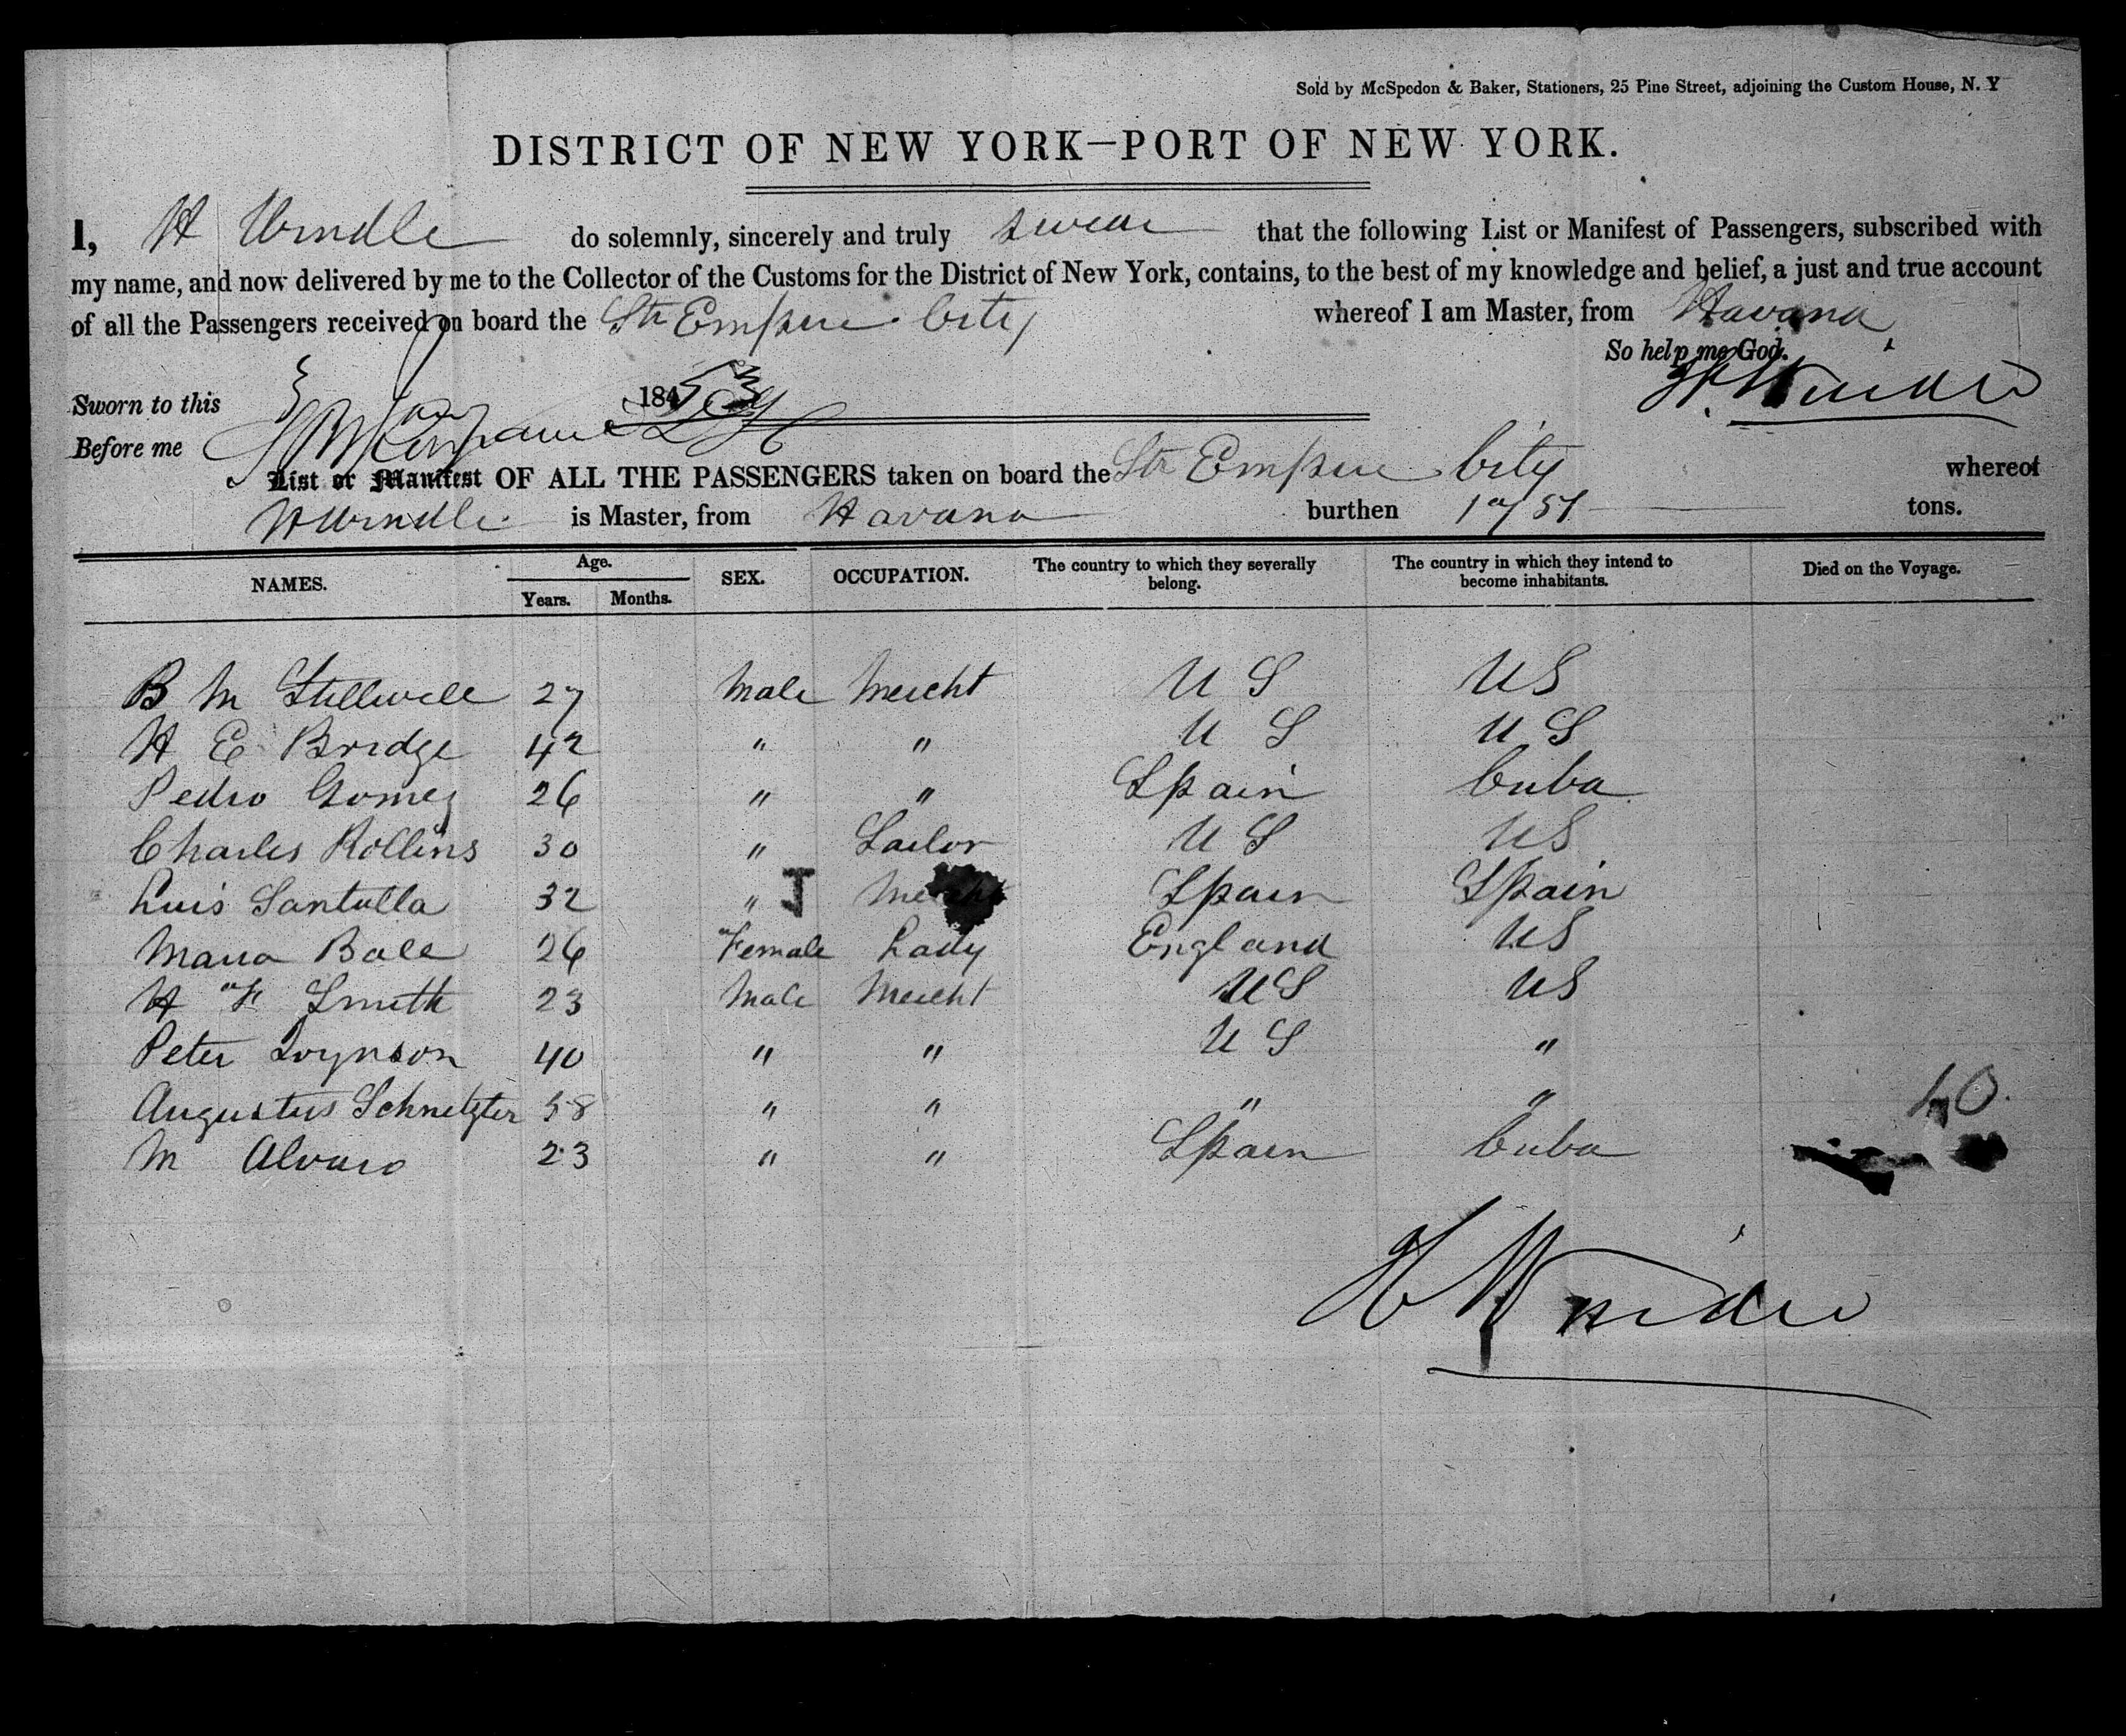 Sold by McSpedon & Baker, Stationers, 25 Pine Street, adjoining the Custom House, N. Y
DISTRICT OF NEW YORK—PORT OF NEW YORK.
I, H Windle do solemnly, sincerely and truly swear that the following List or Manifest of Passengers, subscribed with
my name, and now delivered by me to the Collector of the Customs for the District of New York, contains, to the best of my knowledge and belief, a just and true account
of all the Passengers received on board the Str Empire City whereof I am Master, from Havana
So help me God.
Sworn to this 1853
H Windle
Before me
List or Manifest OF ALL THE PASSENGERS taken on board the Str Empire City whereof
H Windle is Master, from Havana burthen tons.
NAMES. Age. Years. Months. SEX. OCCUPATION. The country to which they severally belong. The country in which they intend to become inhabitants. Died on the Voyage.
B M Stillwell 27 Male Mercht U S US
H E Bridge 42 " " U S U S
Pedro Gomez 26 " " Spain Cuba
Charles Rollins 30 " Sailor U S US
Luis Santulla 32 " Mercht Spain Spain
Maria Bale 26 Female Lady England US
H F Smith 23 Male Mercht US US
Peter 40 " " U S "
Augustus Schnetzter 58 " " " "
M Alvaro 23 " " Spain Cuba
H Windle